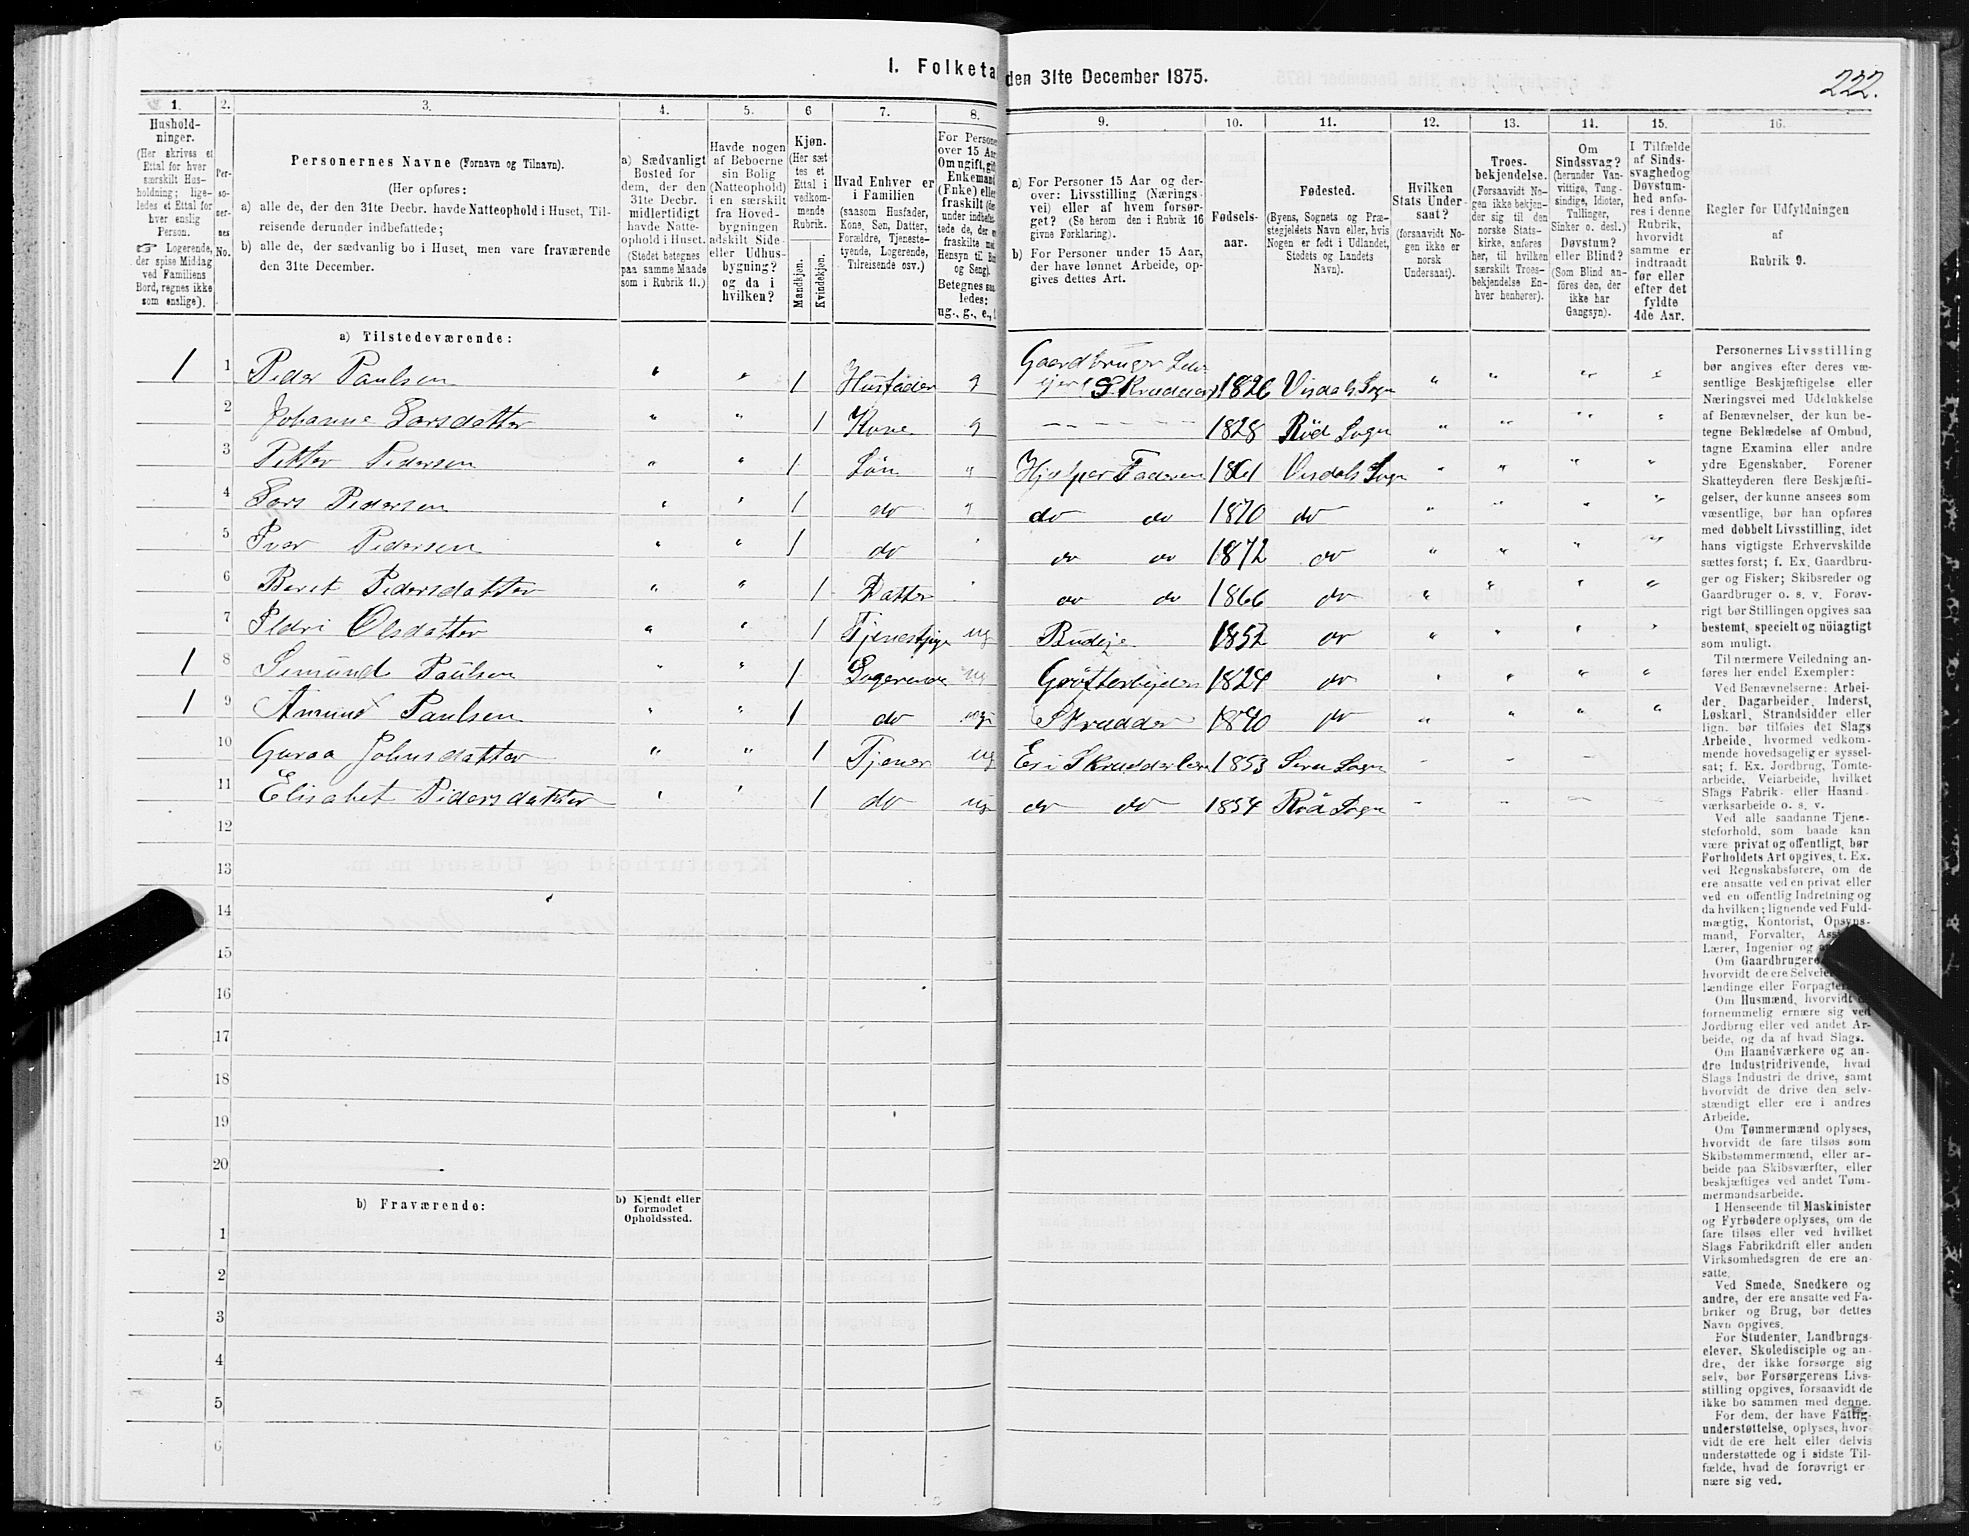 I. Folketa den 31te December 1875.
222.
1. 2. 3. 4. 5. 6 7. 8. 9. 10. 11. 12. 13. 14. 15. 16.
Hushold-
ninger.
(Her skrives et
Ettal for hver
særskilt Hus-
holdning; lige-
ledes et Ettal for
hver enslig
Person.
☞ Logerende,
der spise Middag
ved Familiens
Bord, regnes ikke
som enslige).
Per-
so-
ner-
nes
No.
Personernes Navne (Fornavn og Tilnavn).
(Her opføres:
a) alle de, der den 31te Decbr. havde Natteophold i Huset, Til-
reisende derunder indbefattede;
b) alle de, der sædvanlig bo i Huset, men vare fraværende
den 31te December.
a) Sædvanligt
Bosted for
dem, der den
31te Decbr.
midlertidigt
havde Natte-
ophold i Huset.
(Stedet betegnes
paa samme Maade
som i Rubrik 11.)
Havde nogen
af Beboerne
sin Bolig
(Natteophold)
i en særskilt
fra Hoved-
bygningen
adskilt Side-
eller Udhus-
bygning?
og da i
hvilken?
Kjøn.
(Her sæt
tes et
Ettal i
vedkom-
mende
Rubrik.
Mandkjøn.
Kvindekjøn.
Hvad Enhver er
i Familien
(saasom Husfader,
Kone, Søn, Datter,
Forældre, Tjeneste-
tyende, Logerende,
Tilreisende osv.)
For Persone
over 15 Aa
Om ugift, gif
Enkemand
(Enke) elle
fraskilt
under indbefat-
tede de, der e
fraskilte
Hensyn til Bo
og Seng).
Betegnes saa
ledes:
ug., g., e.,
a) For Personer 15 Aar og der-
over: Livsstilling (Nærings-
vei) eller af hvem forsør-
get? (Se herom den i Rubrik 16
givne Forklaring).
b) For Personer under 15 Aar,
der have lønnet Arbeide, op-
gives dettes Art.
Fødsels-
aar.
Fødested.
(Byens, Sognets og Præ-
stegjeldets Navn eller, hvis
Nogen er født i Udlandet,
Stedets og Landets
Navn).
Hvilken
Stats Under-
saat?
(forsaavidt No-
gen ikke er
norsk
Undersaat).
Troes-
bekjendelse.
(Forsaavidt No-
gen ikke bekjen-
der sig til den
norske Stats-
kirke, anføres
her, til hvilken
særskilt Troes-
bekjendelse En-
hver henhører).
Om
Sindssvag?
(herunder Van-
vittige, Tung-
sindige, Idioter,
Tullinger,
Sinker o. desl.)
Døvstum?
eller Blind?
(Som Blind an-
føres den, der
ikke har
Gangsyn).
I Tilfælde
af Sinds-
svaghed og
Døvstum-
hed anfø-
res i denne
Rubrik,
hvorvidt
samme er
indtraadt
før eller
efter det
fyldte
4de Aar.
Regler for Udfyldningen
af
Rubrik 9.
a) Tilstedeværende:
1 1 Peder Paulsen " " 1 Husfader g Gaardbruger Selv
Skrædder 1826 Visdals Sogn " " " "
2 Johanne Larsdatter " " 1 Kone g - - - - 1828 Röd Sogn " " " "
3 Petter Pedersen " " 1 Søn " Hjelper Faderen 1861 Visdals Sogn " " " "
4 Lars Pedersen " " 1 do " do do 1870 do " " " "
5 Iver Pedersen " " 1 do " do do 1872 do " " " "
6 Beret Pedersdatter " " 1 Datter " do do 1866 do " " " "
7 Ildri Olsdatter " " 1 Tjenestpige ug Budeje 1852 do " " " "
1 8 Semund Paulsen " " 1 Logerende ug Grøftarbejder 1824 do " " " "
1 9 Amund Paulsen " " 1 do ug Skrædder 1840 do " " " "
10 Guraa Johnsdatter " " 1 Tjener ug Er i Skrædderlære 1853 Sogn - - - -
11 Elisabet Pedersdatter " " 1 do ug do do 1854 Röd Sogn - - - -
12
13
14
15
16
17
18
19
20
b) Fraværende:
b) Kjendt eller
formodet
Opholdssted.
1
2
3
4
5
6
Personernes Livsstilling
bør angives efter deres væ-
sentlige Beskjæftigelse eller
Næringsvei med Udelukkelse
af Benævnelser, der kun be-
tegne Beklædelse af Ombud,
tagne Examina eller andre
ydre Egenskaber. Forener
Skatteyderen flere Beskjæfti-
gelser, der kunne ansees som
væsentlige, bør han opføres
med dobbelt Livsstilling, idet
hans vigtigste Erhvervskilde
sættes først; f. Ex. Gaardbru-
ger og Fisker; Skibsreder og
Gaardbruger o. s. v. Forøv-
rigt bør Stillingen opgives saa
bestemt, specielt og nöiagtigt
som muligt.
Til nærmere Veiledning an-
føres her endel Exempler:
Ved Benævnelserne: Arbei-
der, Dagarbeider, Inderst,
Løskarl, Strandsidder eller
lign. bør tilføies det Slags
Arbeide, hvormed vedkom-
mende hovedsagelig er syssel-
sat; f. Ex. Jordbrug, Tomte-
arbeide, Veiarbeide, hvilket
Slags Fabrik- eller Haand-
værksarbeide o. s. v.
Ved alle saadanne Tjene-
steforhold, som baade kan
være privat og offentligt, bør
Forholdets Art opgives, t. Ex.
ved Regnskabsførere, om de
ere ansatte ved en privat eller
ved en offentlig Indretning og
da hvilken; lignende ved Fuld-
mægtig, Kontorist, Opsyns-
mand, Forvalter,
Lærer, Ingeniør og
Om Gaardbrugere,
hvorvidt de ere Selveie
lændinge eller Forpagte
Om Husmænd, hvorvidt
fornemmelig ernære sig ved
Jordbrug eller ved andet Ar-
beide, og da af hvad Slags.
Om Haandværkere og an-
dre Industridrivende, hvad
Slags Industri de drive, samt
hvorvidt de drive den selv-
stændigt eller ere i andres
Arbeide.
Om Tømmermænd oplyses,
hvorvidt de fare tilsøs som
Skibstømmermænd, eller ar-
beide paa Skibsværfter, eller
beskjæftiges ved andet Tøm-
mermandsarbeide.
I Henseende til Maskinister
og Fyrbødere oplyses, om de
fare tilsøs eller ved hvilket
Slags Fabrikdrift eller anden
Virksomhedsgren de ere an-
satte.
Ved Smede, Snedkere og
andre, der ere ansatte ved Fa-
briker og Brug, bør dettes
Navn opgives.
For Studenter, Landbrugs-
elever, Skoledisciple og an-
dre, der ikke forsørge sig
selv, bør Forsørgerens Livs-
stilling opgives, forsaavidt de
ikke bo sammen med denne.
For dem, der have Fattig-
understøttelse, oplyses, hvor-
vidt de ere helt eller delvis
understøttede og i sidste Til-
fælde, hvad de forøvrigt er-
nære sig ved.